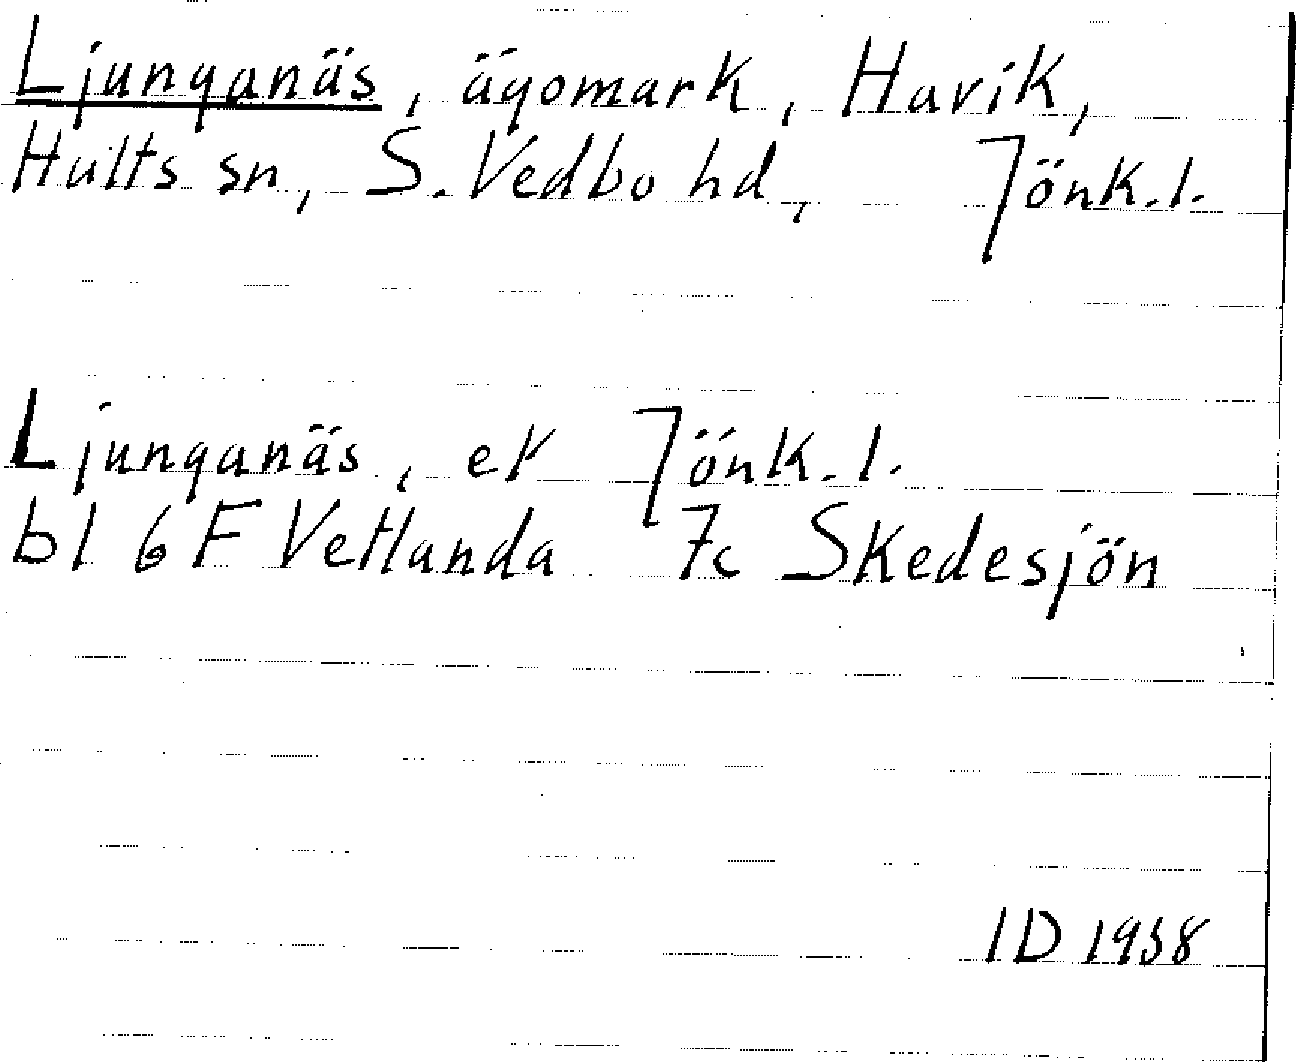 Ljunganäs, ägomark, Havik,
Hults sn, S. Vedbo hd, Jönk. l.
Ljunganäs, ek Jönk. l.
bl 6 F Vetlanda 7c Skedesjön
ID 1938